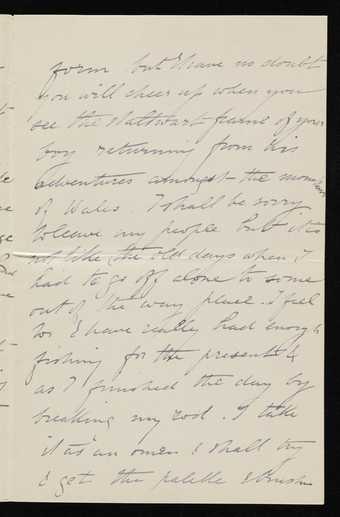 form but I have no doubt
you will cheer up when you
see the stalwart frame of your
boy returning from his
adventures amongst the mountains
of Wales. I shall be sorry
to leave my people but it is
not like the old days when I
had to go off alone to some
out of the way place. I feel
too I have really had enough
fishing for the present &
as I finished the day by
breaking my rod. I take
it as an omen & shall try
& get the palette & brushes